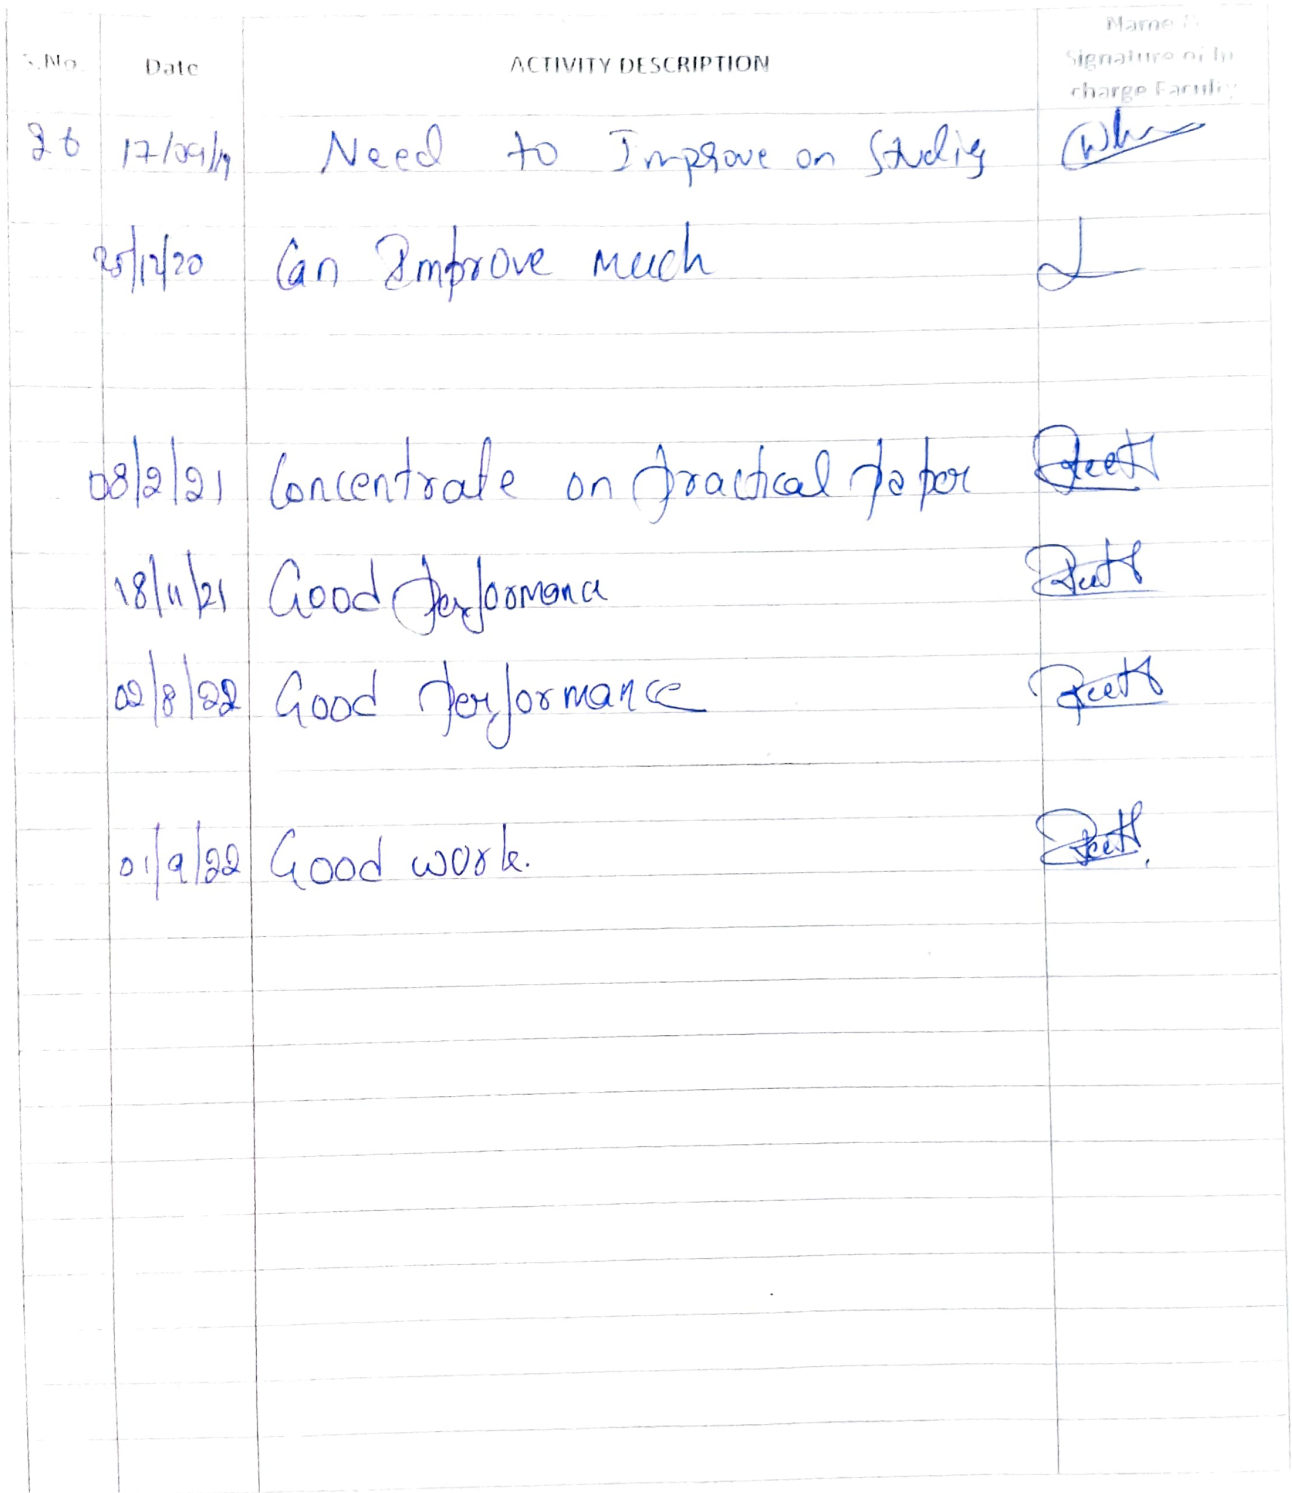 S.No. Date ACTIVITY DESCRIPTION Name &
Signature of In
charge Faculty
26 17/09/19 Need to Improve on Studies
25/12/20 Can Improve much
08/2/21 Concentrate on practical paper
18/11/21 Good performance
02/8/22 Good performance
01/9/22 Good work.